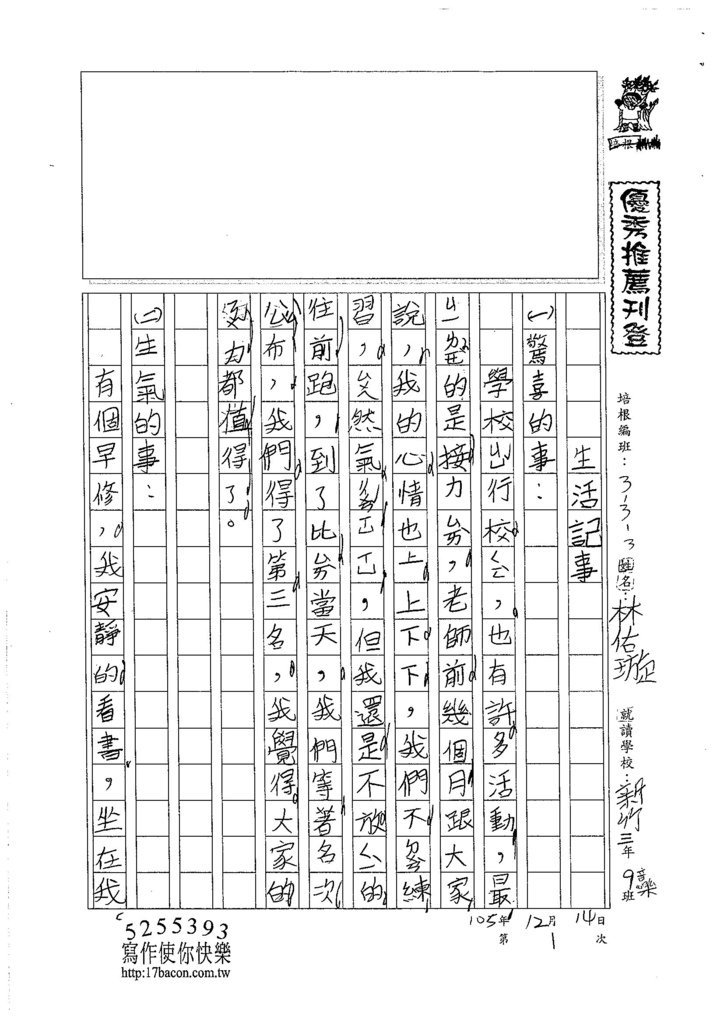 培根
優秀推薦刊登
培根編班：3-3-3 姓名：林佑璇 就讀學校：新竹三年9班 音樂
105年12月14日
第1次
生活記事
(一)驚喜的事：
學校行校，也有許多活動，最
的是接力，老師前幾個月跟大家
說，我的心情也上上下下，我們不練
習，然氣，但我還是不放的
往前跑，到了比當天，我們等著名次
公布，我們得了第三名，我覺得大家的
努力都值得了。
(二)生氣的事：
有個早修，我安靜的看書，坐在我
5255393
寫作使你快樂
http:17bacon.com.tw